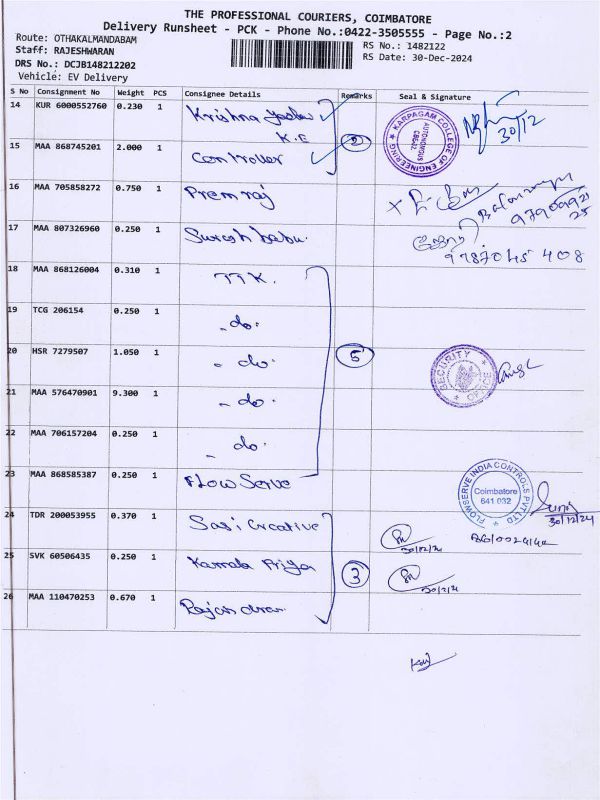 THE PROFESSIONAL COURIERS, COIMBATORE
Delivery Runsheet - PCK - Phone No.:0422-3505555 - Page No.:2
Route: OTHAKALMANDABAM
Staff: RAJESHWARAN
DRS No.: DCJB148212202
Vehicle: EV Delivery
RS No.: 1482122
RS Date: 30-Dec-2024
S No Consignment No Weight PCS Consignee Details Remarks Seal & Signature
14 KUR 6000552760 0.230 1 Krishna
K.E
15 MAA 868745201 2.000 1 Controller
2
KARPAGAM COLLEGE OF ENGINEERING
AUTONOMOUS
30/12
16 MAA 705858272 0.750 1 Prem raj
17 MAA 807326960 0.250 1 Suresh babu
18 MAA 868126004 0.310 1 TTK.
19 TCG 206154 0.250 1 - do.
20 HSR 7279507 1.050 1 - do.
5
SECURITY OFFICE
21 MAA 576470901 9.300 1 - do.
22 MAA 706157204 0.250 1 - do.
23 MAA 868585387 0.250 1 Flow Serve
FLOWSERVE INDIA CONTROLS PVT LTD
Coimbatore
641 032
30/12/24
24 TDR 200053955 0.370 1 Sasi Creative
25 SVK 60506435 0.250 1 Kamala Priya
3
26 MAA 110470253 0.670 1